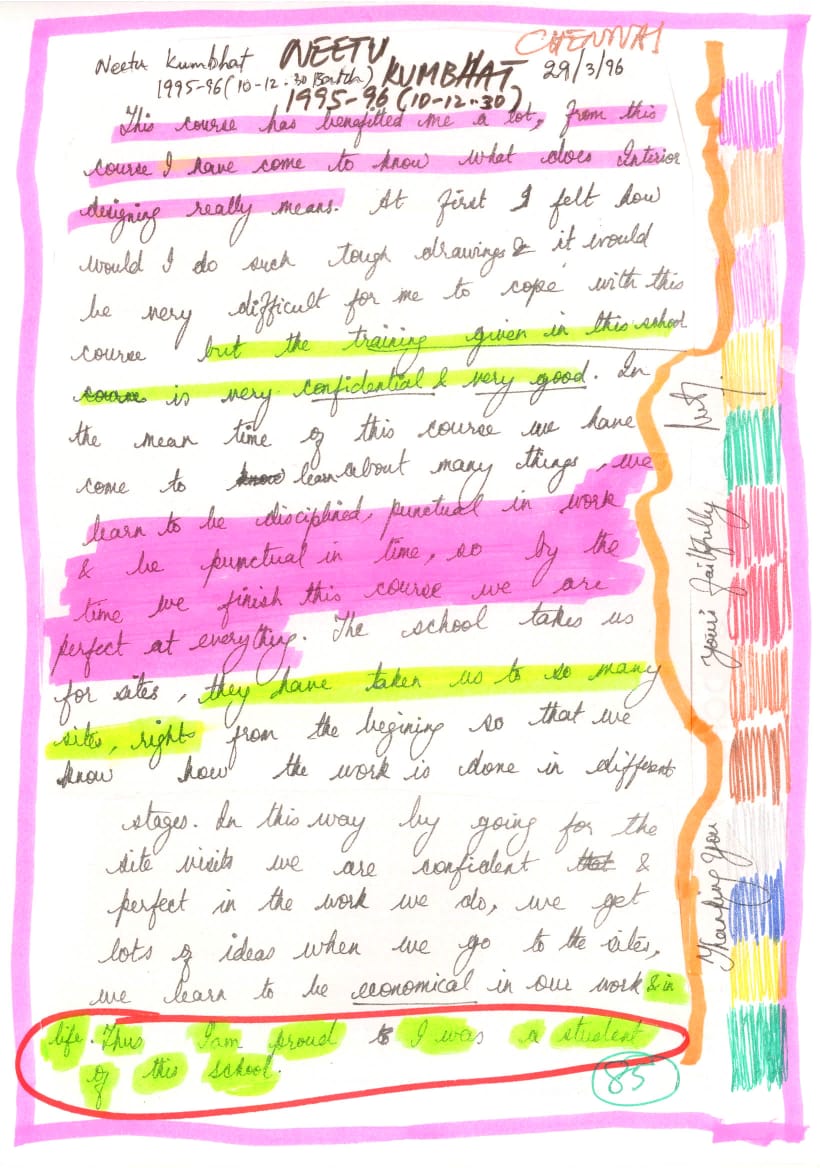 CHENNAI
Neetu Kumbhat NEETU KUMBHAT 29/3/96
1995-96(10-12.30 Batch)
1995-96 (10-12..30)
This course has benefitted me a lot, from this
course I have come to know what does Interior
designing really means. At first I felt how
would I do such tough drawings & it would
be very difficult for me to cope with this
course but the training given in this school
course is very confidential & very good. In
the mean time of this course we have
come to know learn about many things, we
learn to be disciplined, punctual in work
& be punctual in time, so by the
time we finish this course we are
perfect at everything. The school takes us
for sites, they have taken us to so many
sites, rights from the begining so that we
know how the work is done in different
stages. In this way by going for the
site visits we are confident that &
perfect in the work we do, we get
lots of ideas when we go to the sites,
we learn to be economical in our work & in
life. Thus I am proud to I was a student
of this school.
Thanking You
Your's faithfully
85